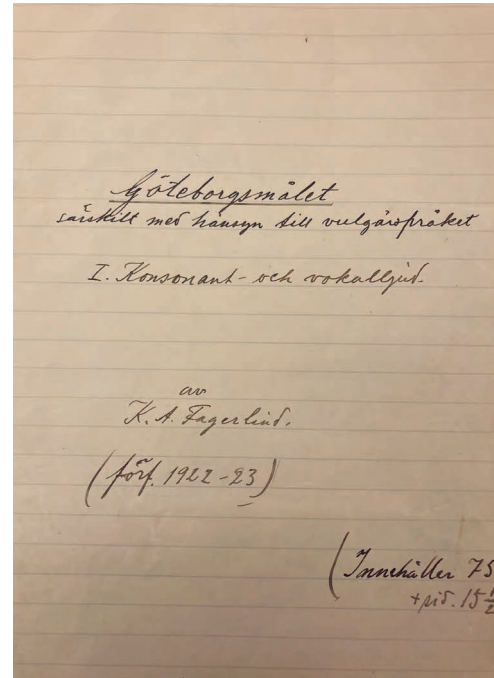 Göteborgsmålet
särskilt med hänsyn till vulgärspråket
I. Konsonant- och vokalljud.
av
K. A. Fagerlind.
(förf. 1922-23)
(Innehåller 75
+ sid. 15 1/2